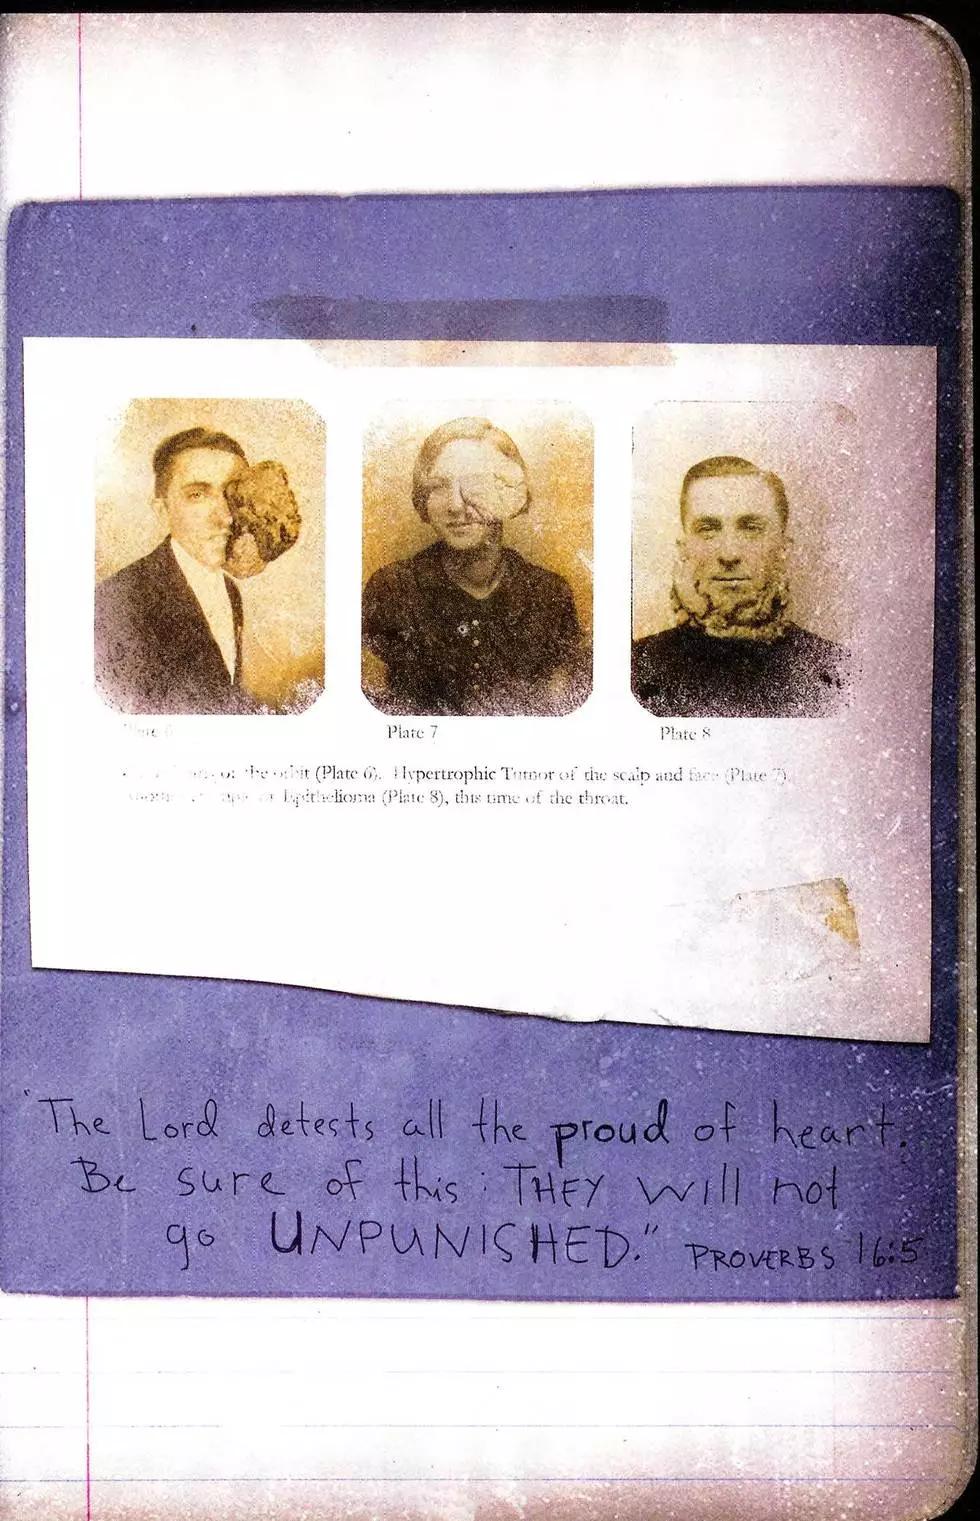 Plate 7
Plate 8
of the orbit (Plate 6). Hypertrophic Tumor of the scalp and face (Plate 7).
Epithelioma (Plate 8), this time of the throat.
"The Lord detests all the proud of heart.
Be sure of this: THEY will not
go UNPUNISHED." PROVERBS 16:5